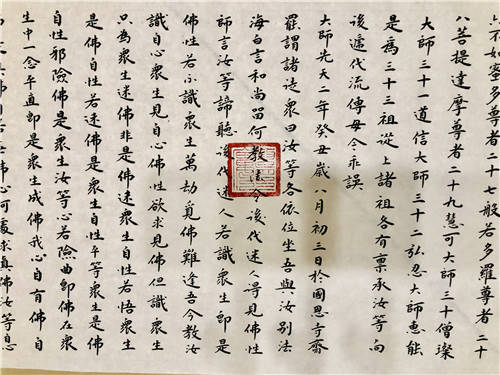 六不如蜜多尊者二十七般若多羅尊者二十
八菩提達摩尊者二十九慧可大師三十僧璨
大師三十一道信大師三十二弘忍大師惠能
是為三十三祖從上諸祖各有稟承汝等向
後遞代流傳毋令乖誤
大師先天二年癸丑歲八月初三日於國恩寺齋
罷謂諸徒眾曰汝等各依位坐吾與汝別法
海白言和尚留何教法令後代迷人得見佛性
師言汝等諦聽後代迷人若識眾生即是
佛性若不識眾生萬劫覓佛難逢吾今教汝
識自心眾生見自心佛性欲求見佛但識眾生
只為眾生迷佛非是佛迷眾生自性若悟眾生
是佛自性若迷佛是眾生自性平等眾生是佛
自性邪險佛是眾生汝等心若險曲即佛在眾
生中一念平直即是眾生成佛我心自有佛自
佛心何處求真佛汝等自